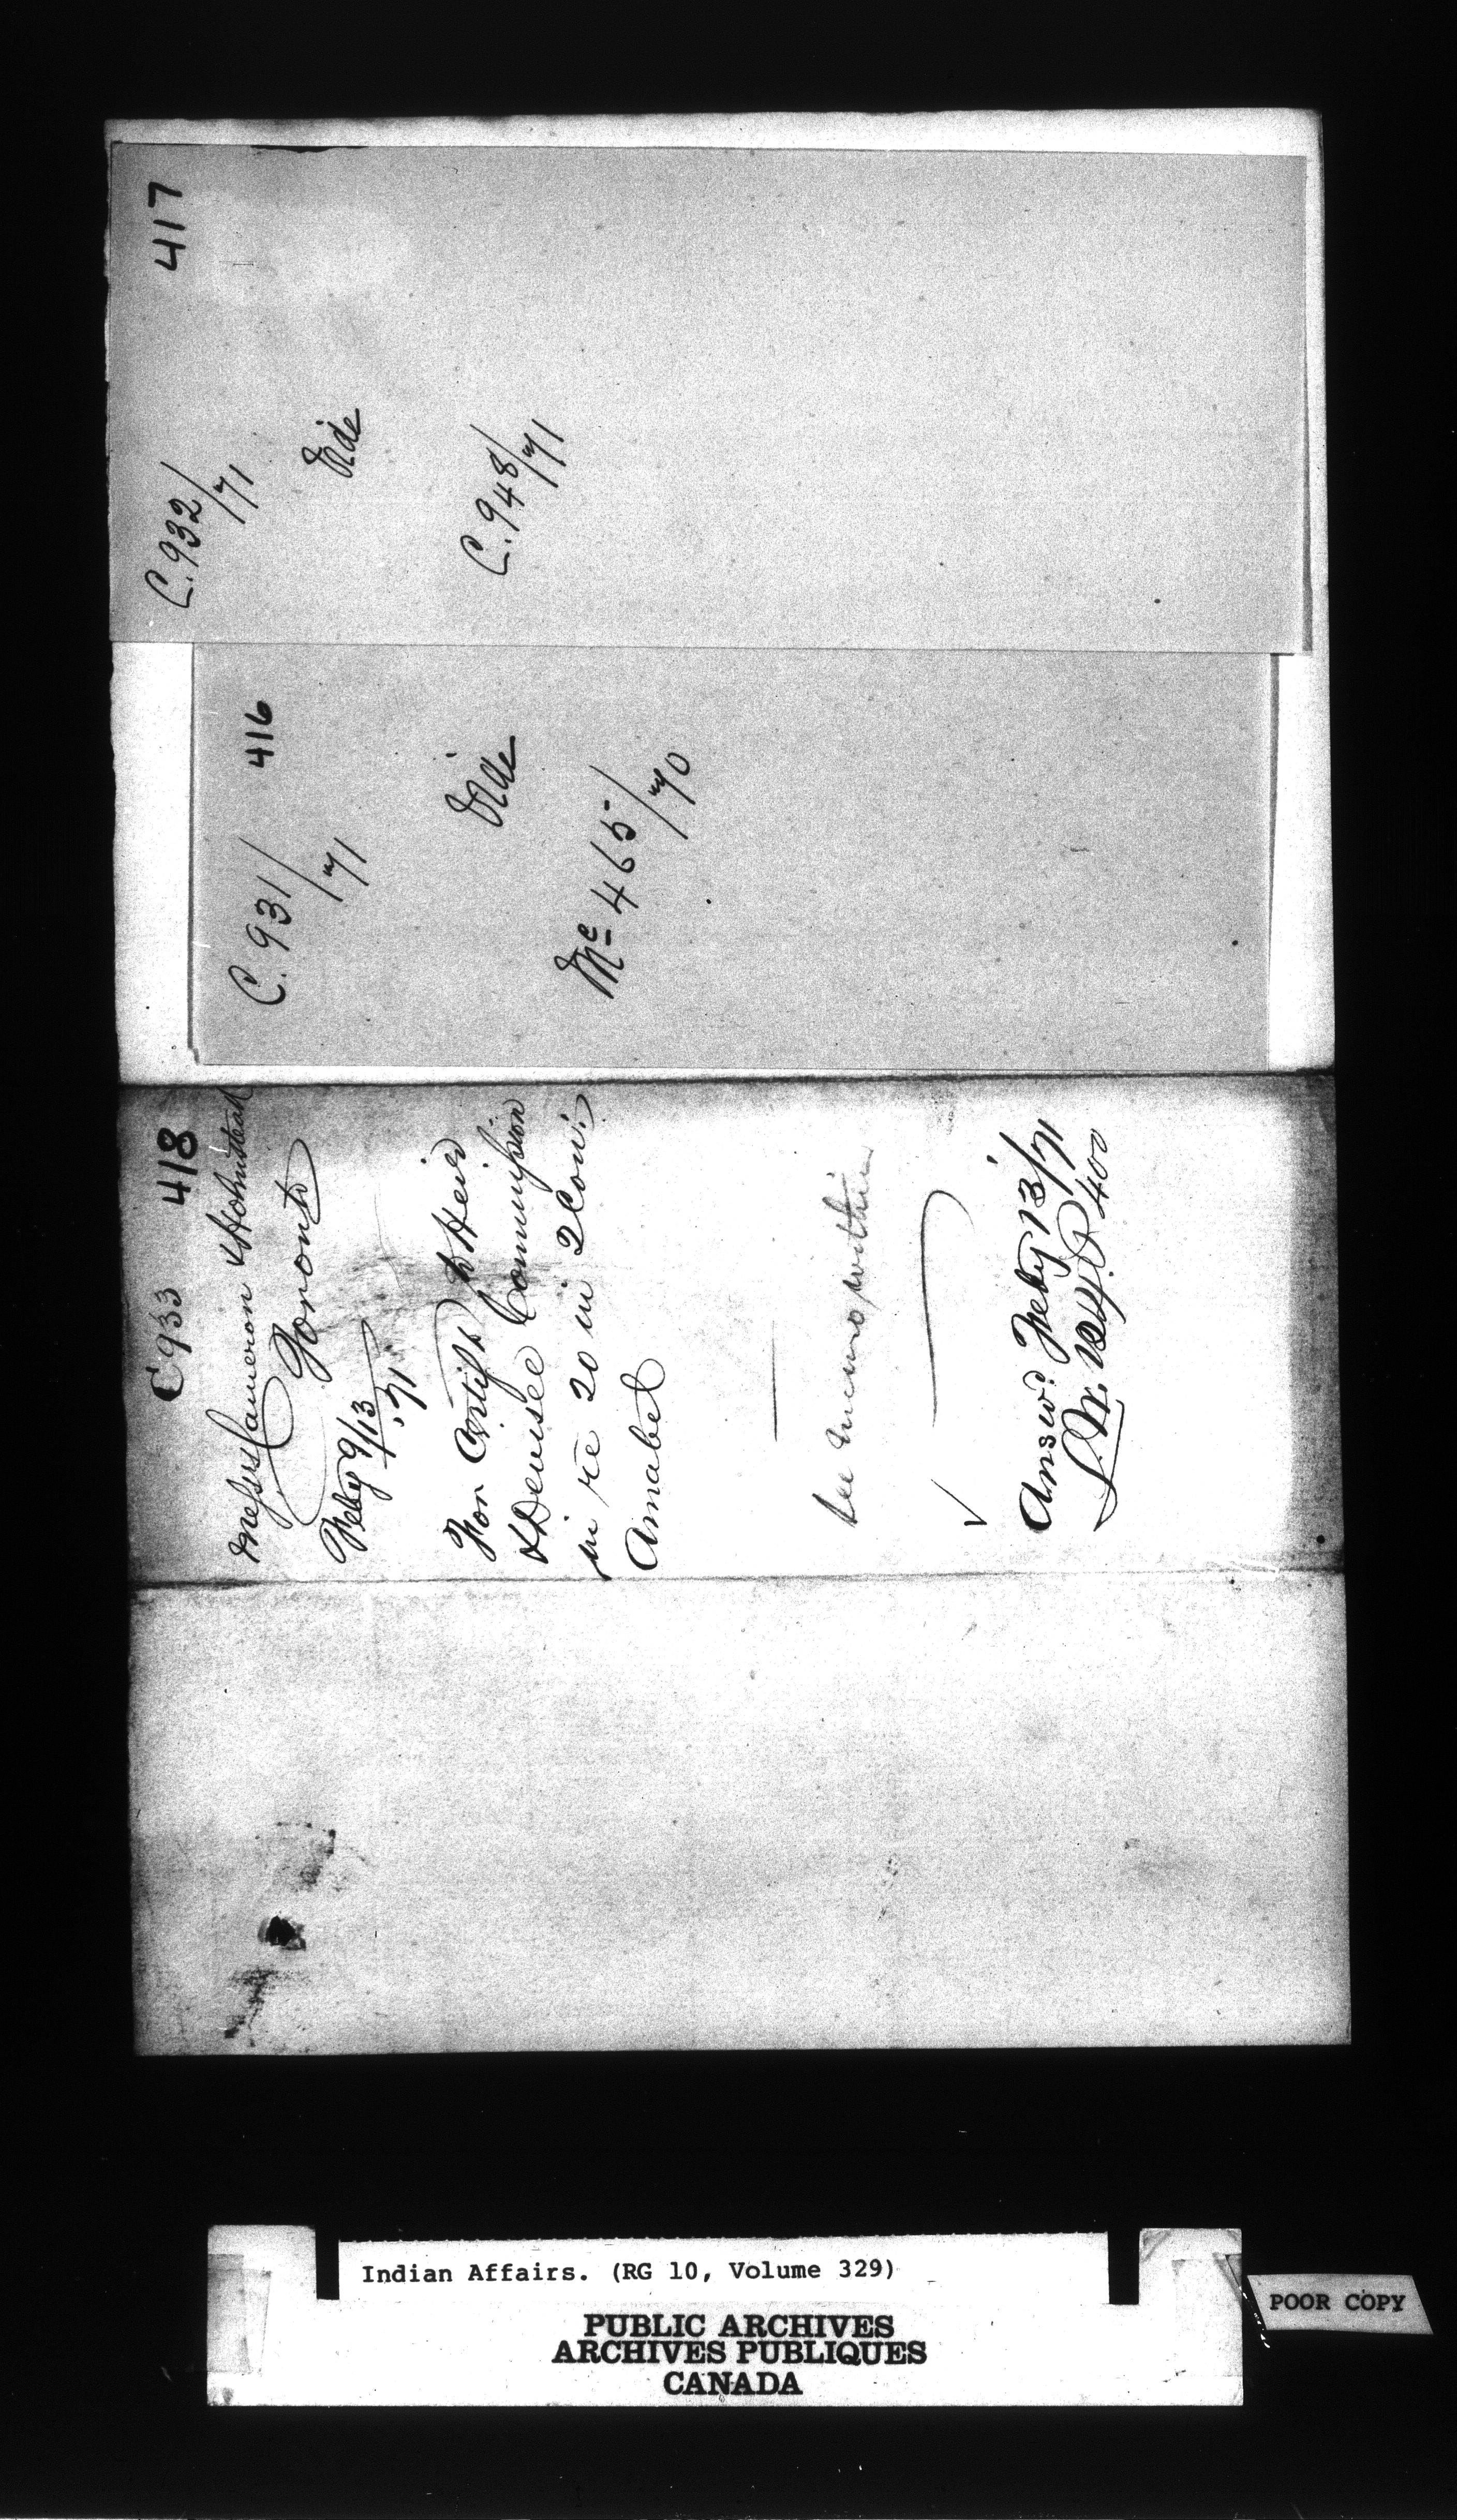 417
C. 932/71
Vide
C. 948/71
416
C. 931/71
Vide
Mc 465/70
418
C 933
Messrs Cameron &
Toronto
Feby 9/13 .71
For Certift to Heir
& Devisee Commission
in re 20 in 2 Con;
Amabel
See memo within
Answd. Feby 13/71
400
Indian Affairs. (RG 10, Volume 329)
PUBLIC ARCHIVES
ARCHIVES PUBLIQUES
CANADA
POOR COPY